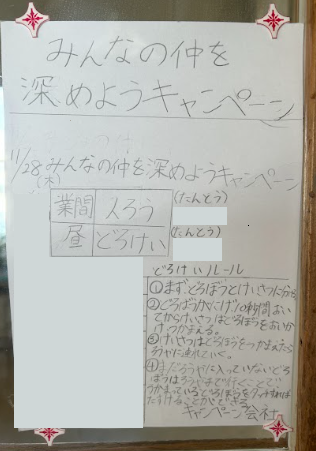 みんなの仲を
深めようキャンペーン
11/28 みんなの仲を深めようキャンペーン
(木)
業間 人ろう (たんとう)
昼 どろけい (たんとう)
どろけいルール
①まず、どろぼうとけいさつに
②どろぼうがにげる時間おい
てからけいさつはどろぼうをおいか
けつかまえる。
③けいさつはどろぼうをつかまえたら
ろうやに連れていく。
④まだろうやに入っていないどろ
ぼうはろうやまで行く
つかまっているどろぼうを
たすけることができる
キャンペーン会社